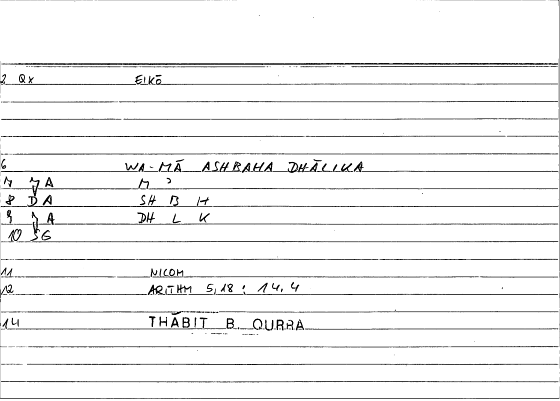 2 Qx EIKŌ
6 WA-MĀ ASHBAHA DHĀLIKA
7 A M ʾ
8 D A SH B H
9 A DH L K
10 SG
11 NICOM
12 ARITHM 5,18 : 14,4
14 THĀBIT B. QURRA